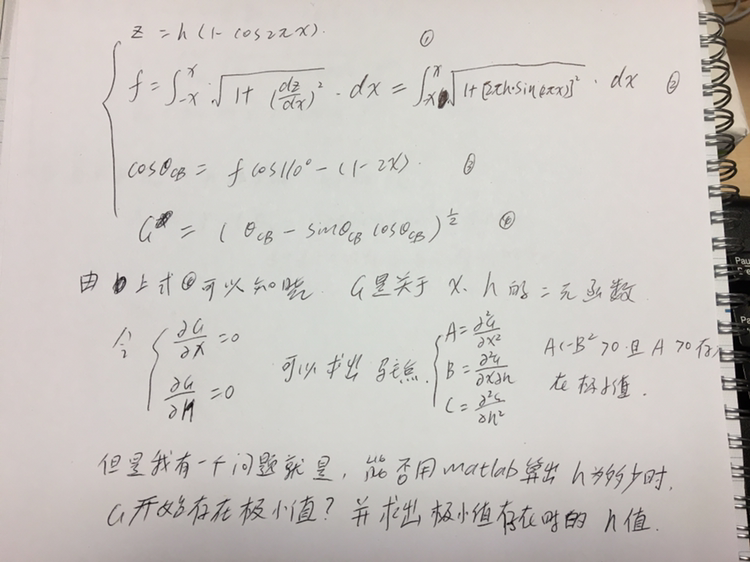 z = h(1-cos2πx). ①
f = ∫_{-x}^{x} √(1+(dz/dx)²) · dx = ∫_{-x}^{x} √(1+[2πh·sin(2πx)]²) · dx ②
cosθ_CB = f cos110° - (1-2x). ③
G = (θ_CB - sinθ_CB cosθ_CB)^{1/2} ④
由上式④可以知晓. G是关于 x、h 的二元函数
令 { ∂G/∂x = 0 ∂G/∂H = 0 可以求出 { A = ∂²G/∂x² B = ∂²G/∂x∂h C = ∂²G/∂h² AC-B²>0 且 A>0 存
在极小值.
但是我有一个问题就是, 能否用matlab算出 h为多少时,
G开始存在极小值? 并求出极小值存在时的 h值.
Pau
Pau